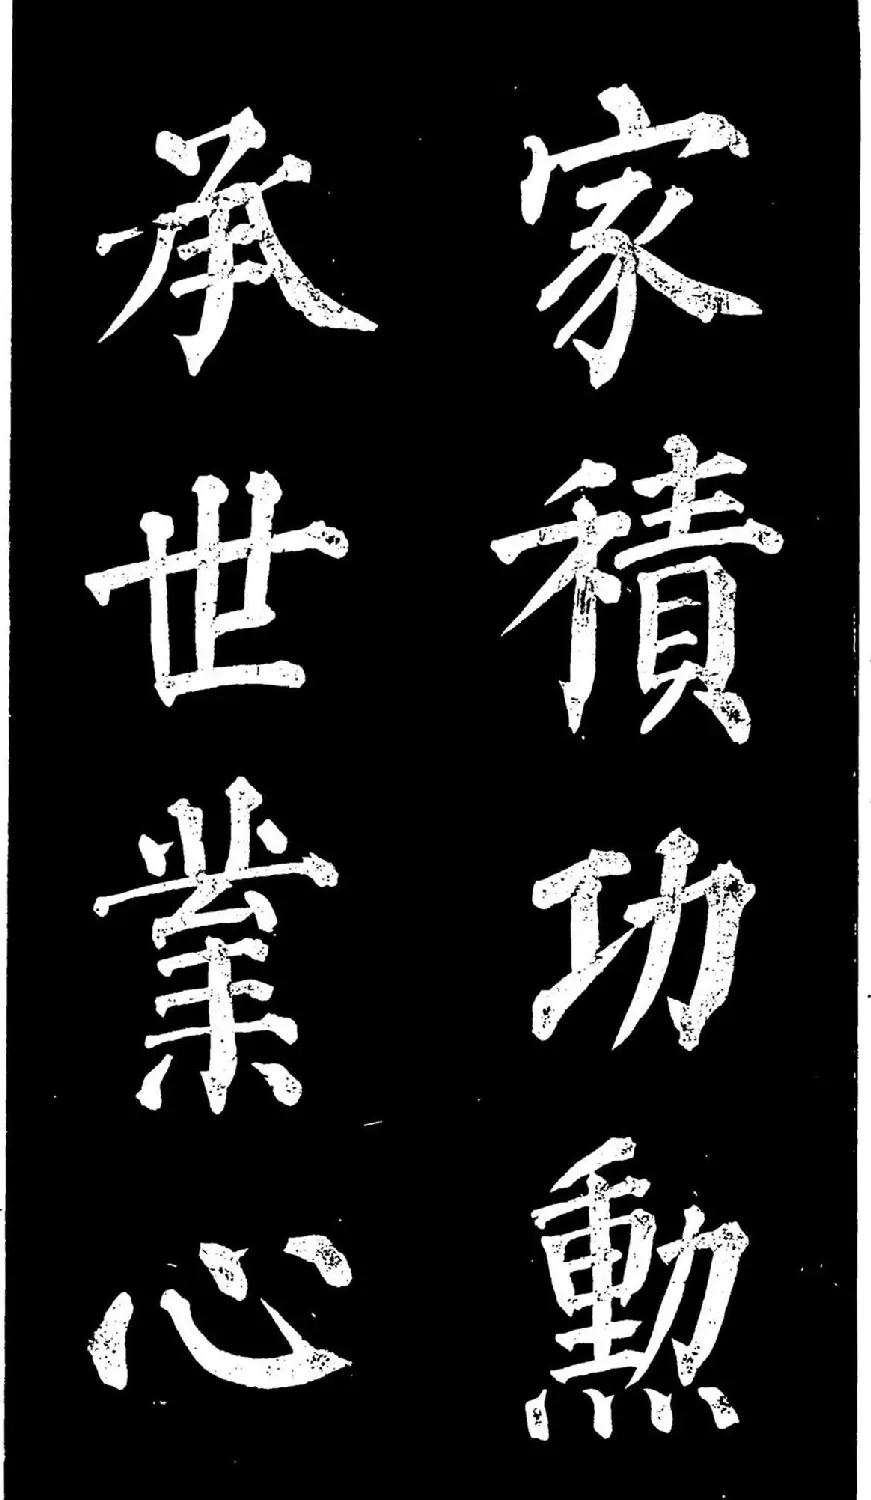 家積功勳
承世業心